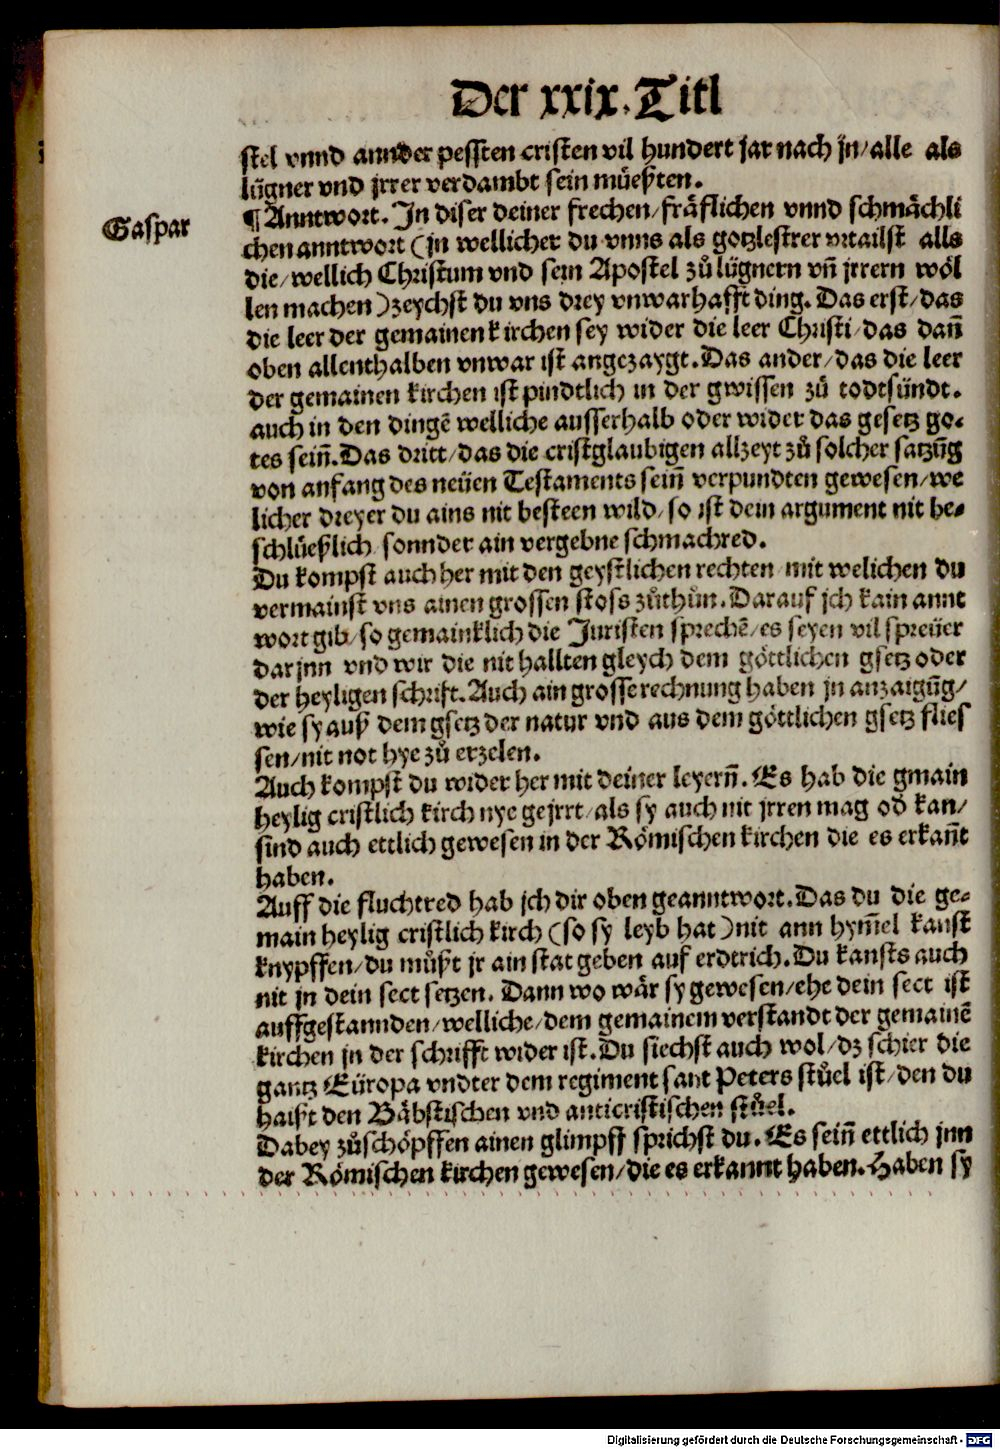 Der xxix. Titl
stel vnnd annder pessten cristen vil hundert jar nach jn/alle als
lügner vnd jrrer verdambt sein müeßten.
Gaspar
¶ Anntwort. Jn diser deiner frechen/fräflichen vnnd schmächli
chen anntwort (jn wellicher du vnns als gotzlestrer vrtailst alls
die/wellich Christum vnd sein Apostel zů lügnern vñ jrrern wöl
len machen) zeychst du vns drey vnwarhafft ding. Das erst/das
die leer der gemainen kirchen sey wider die leer Christi/das dañ
oben allenthalben vnwar ist angezaygt. Das ander/das die leer
der gemainen kirchen ist pindtlich in der gwissen zů todtsündt.
auch in den dingẽ welliche ausserhalb oder wider das gesetz go-
tes seiñ. Das dritt/das die cristglaubigen allzeyt zů solcher satzũg
von anfang des neüen Testaments seiñ verpundten gewesen/we
licher dreyer du ains nit besteen wild/so ist dein argument nit be-
schlüeßlich/sonnder ain vergebne schmachred.
Du kompst auch her mit den geystlichen rechten/mit welichen du
vermainst vns ainen grossen stoss zůthůn. Darauf jch kain annt
wort gib/so gemainklich die Juristen sprechẽ/es seyen vil spreüer
darjnn vnd wir die nit hallten gleych dem göttlichen gsetz oder
der heyligen schrift. Auch ain grosse rechnung haben jn anzaigũg/
wie sy auß dem gsetz der natur vnd aus dem göttlichen gsetz flies
sen/nit not hye zů erzelen.
Auch kompst du wider her mit deiner leyerñ. Es hab die gmain
heylig cristlich kirch nye gejrrt/als sy auch nit jrren mag oď kan/
sind auch ettlich gewesen in der Römischen kirchen die es erkañt
haben.
Auff die fluchtred hab jch dir oben geanntwort. Das du die ge-
main heylig cristlich kirch (so sy leyb hat) nit ann hym̃el kanst
knypffen/du můßt jr ain stat geben auf erdtrich. Du kansts auch
nit jn dein sect setzen. Dann wo wär sy gewesen/ehe dein sect ist
auffgestannden/welliche/dem gemainem verstandt der gemainẽ
kirchen jn der schrifft wider ist. Du siechst auch wol/dz schier die
gantz Eüropa vndter dem regiment sant Peters stůel ist/den du
haißt den Bäbstischen vnd anticristischen stůel.
Dabey zůschöpffen ainen glimpff sprichst du. Es seiñ ettlich jnn
der Römischen kirchen gewesen/die es erkannt haben. Haben sy
Digitalisierung gefördert durch die Deutsche Forschungsgemeinschaft - DFG